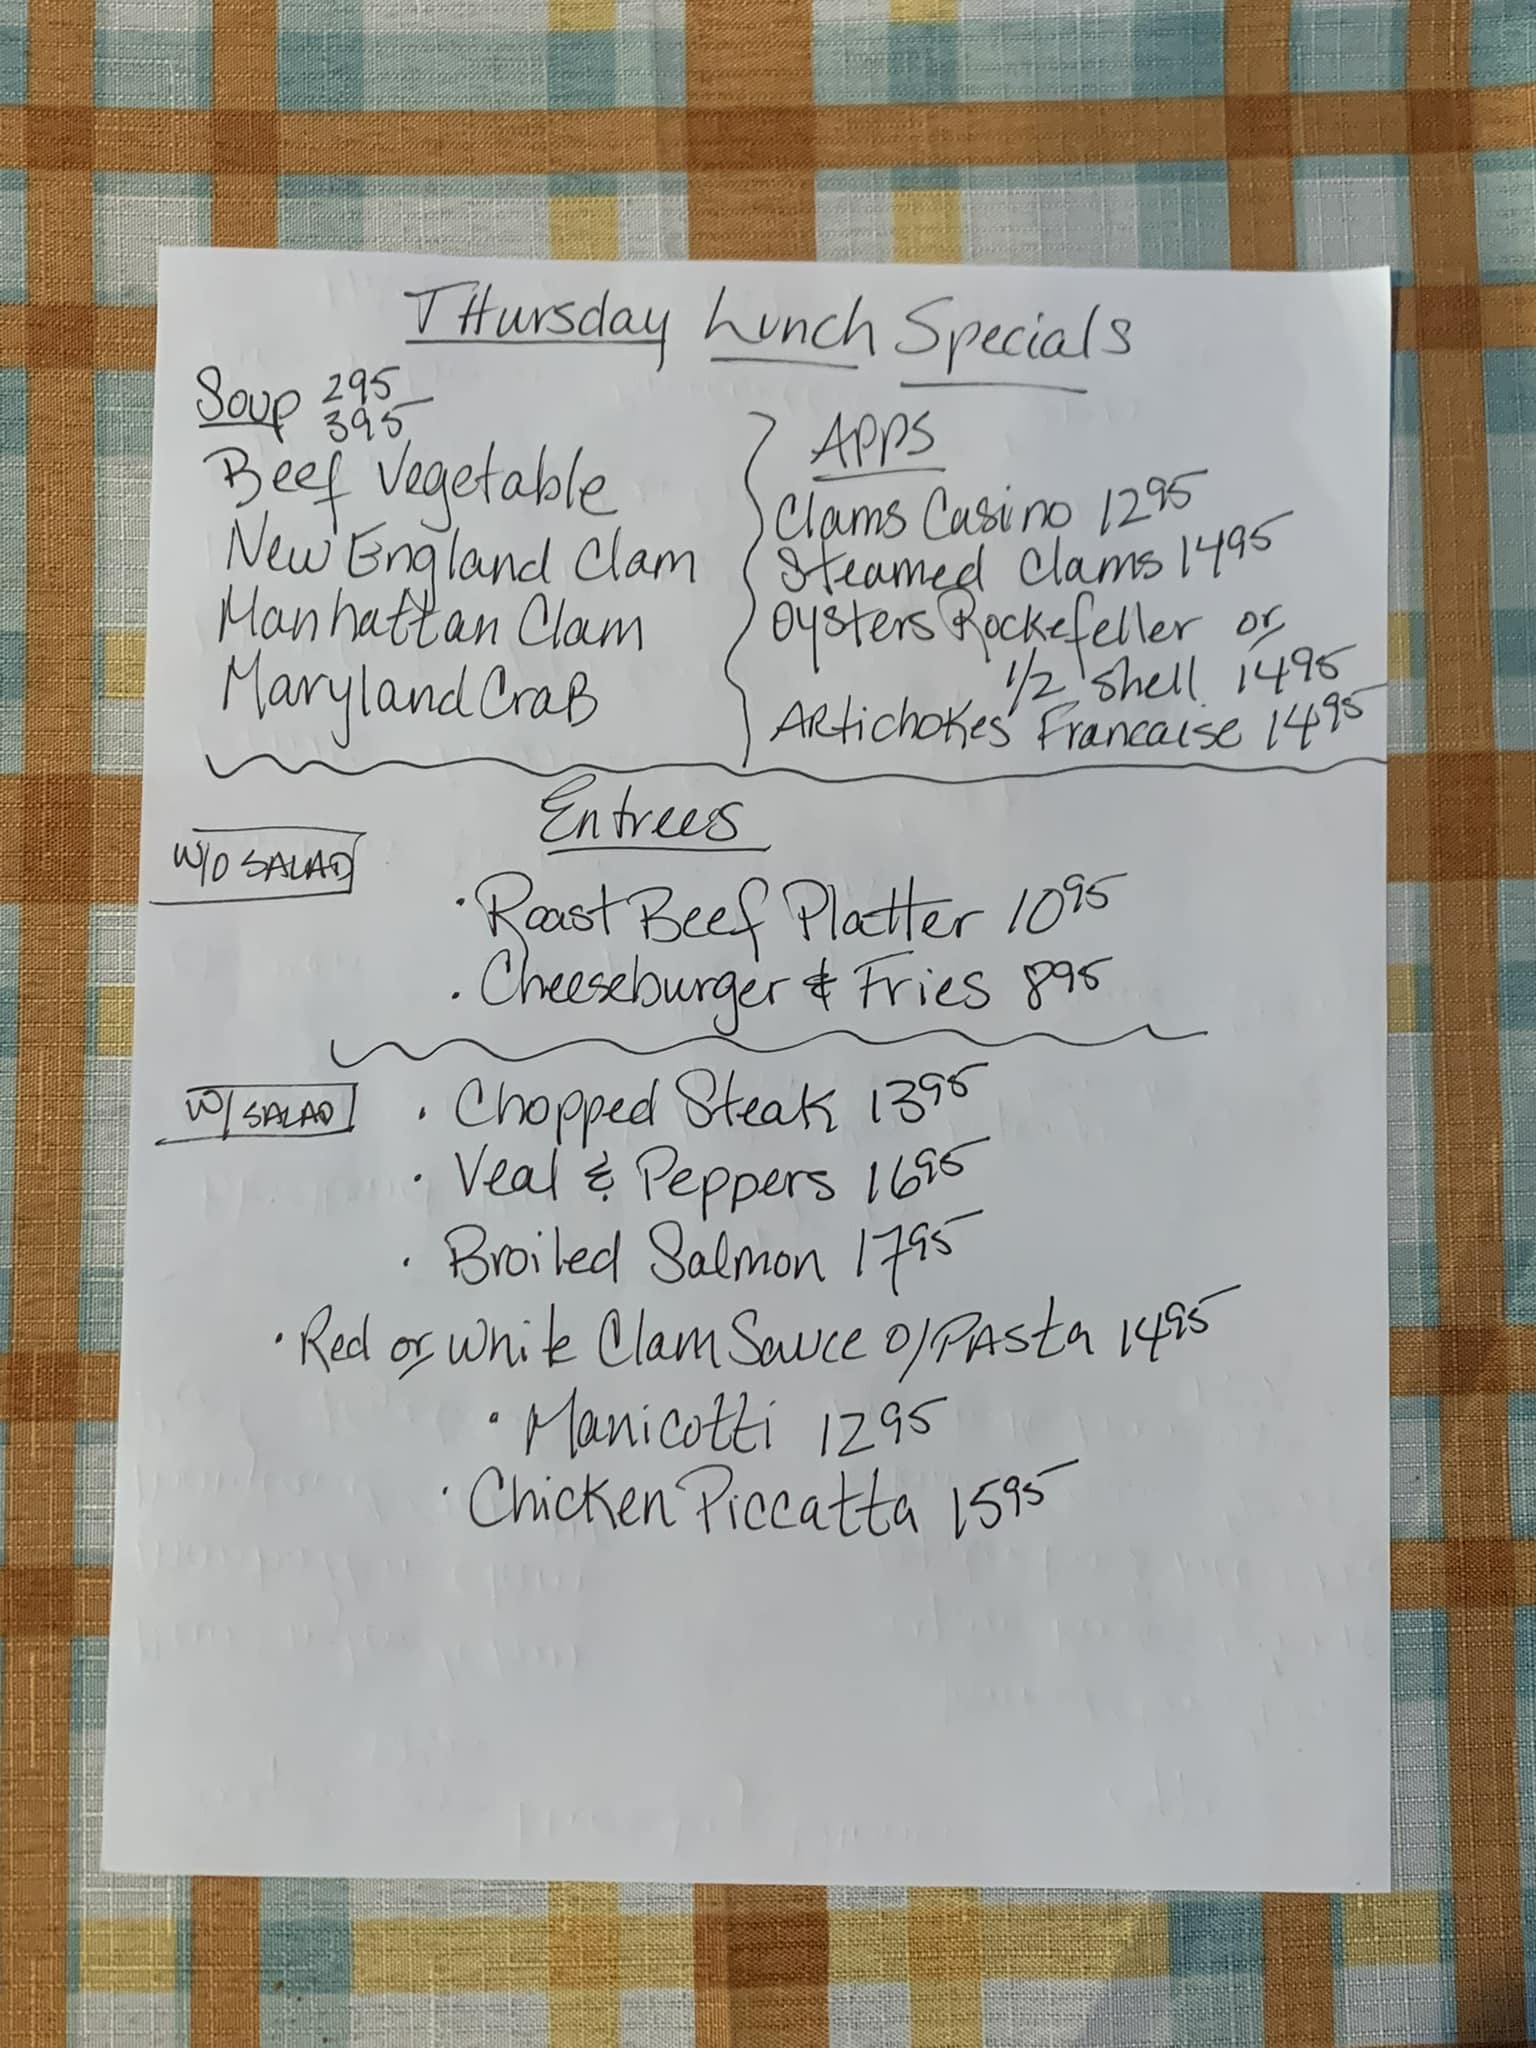 Thursday Lunch Specials
Soup 295
395
Beef Vegetable
New England Clam
Manhattan Clam
Maryland Crab
Apps
Clams Casino 1295
Steamed Clams 1495
Oysters Rockefeller or
1/2 shell 1495
Artichokes Francaise 1495
Entrees
W/O SALAD
· Roast Beef Platter 1095
· Cheeseburger & Fries 895
W/ SALAD
· Chopped Steak 1395
· Veal & Peppers 1695
· Broiled Salmon 1795
· Red or White Clam Sauce o/Pasta 1495
· Manicotti 1295
· Chicken Piccatta 1595